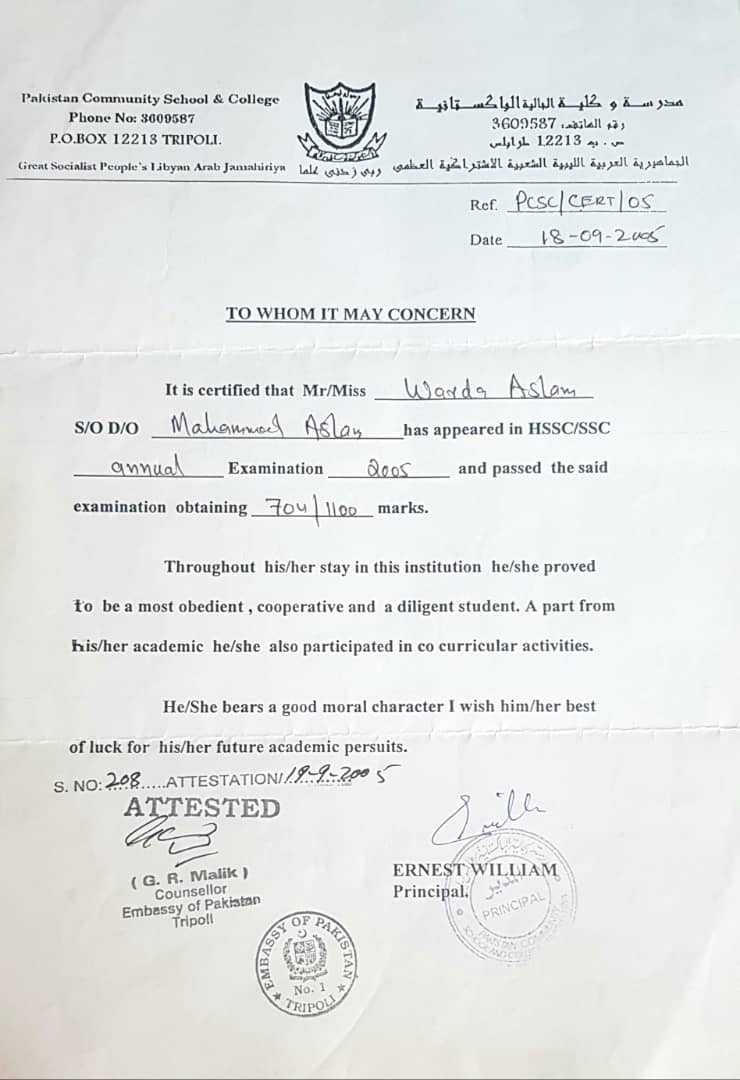 Pakistan Community School & College
Phone No: 3609587
P.O.BOX 12213 TRIPOLI.
Great Socialist People's Libyan Arab Jamahiriya
مدرسة و كلية الجالية الباكستانية
رقم الهاتف، 3609587
ص . ب 12213 طرابلس
الجماهيرية العربية الليبية الشعبية الاشتراكية العظمى
ربي زدني علما
Ref. PCSC/CERT/05
Date 18-09-2005
TO WHOM IT MAY CONCERN
It is certified that Mr/Miss Warda Aslam
S/O D/O Mohammad Aslam has appeared in HSSC/SSC
annual Examination 2005 and passed the said
examination obtaining 704/1100 marks.
Throughout his/her stay in this institution he/she proved
to be a most obedient , cooperative and a diligent student. A part from
his/her academic he/she also participated in co curricular activities.
He/She bears a good moral character I wish him/her best
of luck for his/her future academic persuits.
S. NO: 208.....ATTESTATION/19-9-2005
ATTESTED
( G. R. Malik )
Counsellor
Embassy of Pakistan
Tripoli
ERNEST WILLIAM
Principal.
PRINCIPAL
EMBASSY OF PAKISTAN
No. 1
TRIPOLI